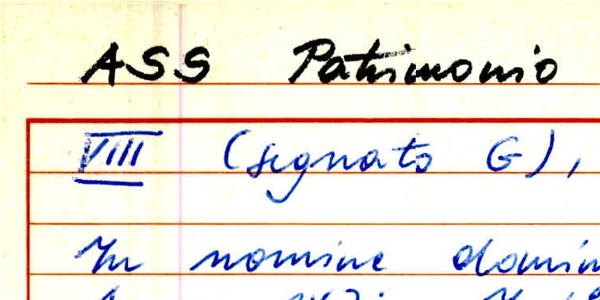 ASS Patrimonio
VIII (segnato G),
In nomine domin